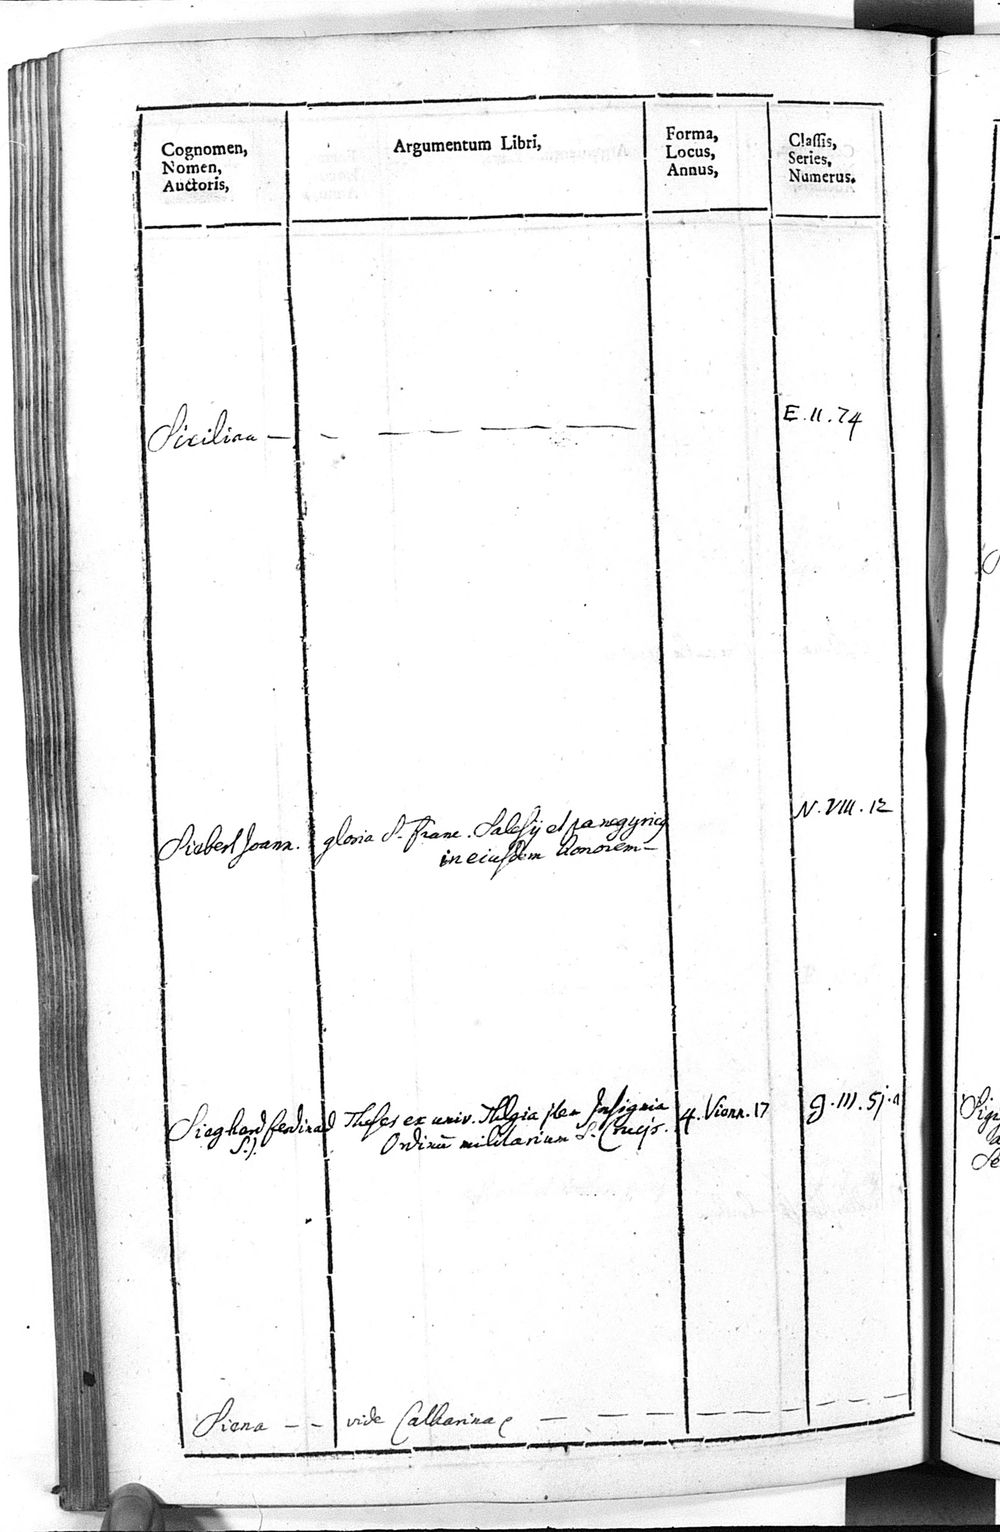 Cognomen,
Nomen,
Auctoris,
Argumentum Libri,
Forma,
Locus,
Annus,
Classis,
Series,
Numerus.
E. II. 74
Siebert Joann.
gloria S. Franc. Salesij et panegyricq
in eiusdem honorem
N. VIII. 12
Sieghard ferdinad
S. J.
Theses ex univ. Thlgia jtem Insignia
Ordinū militarium S. Crucis.
4. Vienn. 17
g. III. 51. a
Siena - - vide Catharina